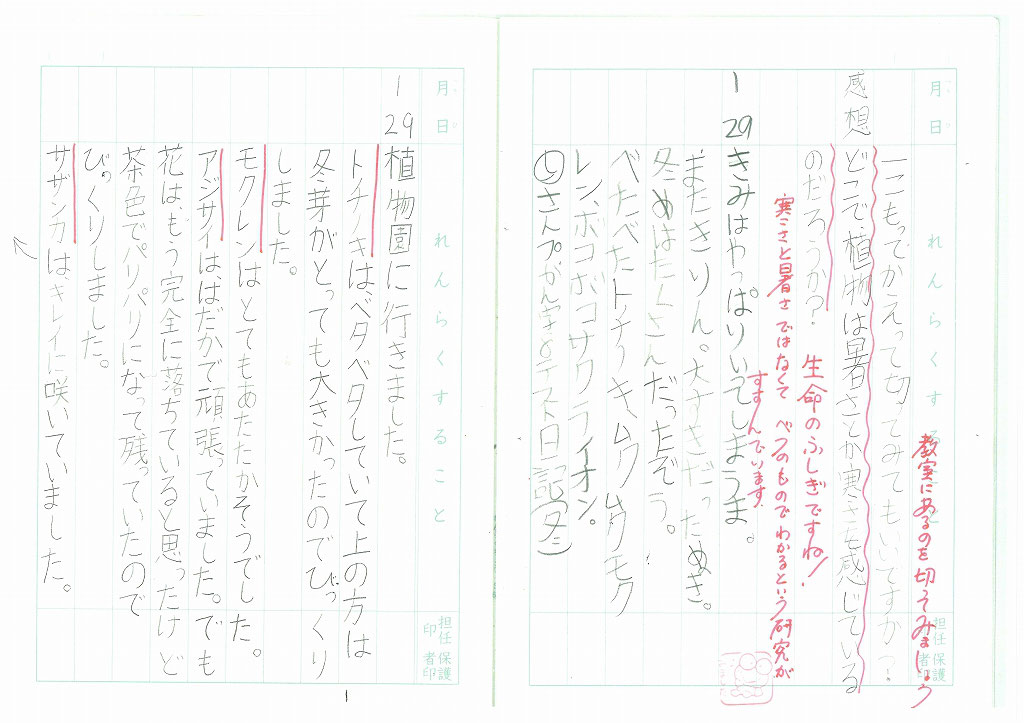 月 日
れんらくすること
担任印
保護者印
教室にあるのを切ってみましょう
一こもってかえって切ってみてもいいですか…
感想
どこで、植物は暑さとか寒さを感じている
のだろうか？
生命のふしぎですね！
寒さと暑さではなくて べつのもので わかるという研究が
すすんでいます。
1 29
きみはやっぱりいってしまうま。
またきりん。大すきだったぬき。
冬めはたくさんだったぞう。
べたべたトチノキ、ムクムクモク
レン、ボコボコサワライオン。
さんプがん字のテスト日記(冬)
月 日
れんらくすること
担任印
保護者印
1 29
植物園に行きました。
トチノキは、ベタベタしていて上の方は
冬芽がとっても大きかったのでびっくり
しました。
モクレンはとてもあたたかそうでした。
アジサイは、はだかで頑張っていました。でも
花は、もう完全に落ちていると思ったけど
茶色でパリパリになって残っていたので
びっくりしました。
サザンカは、キレイに咲いていました。